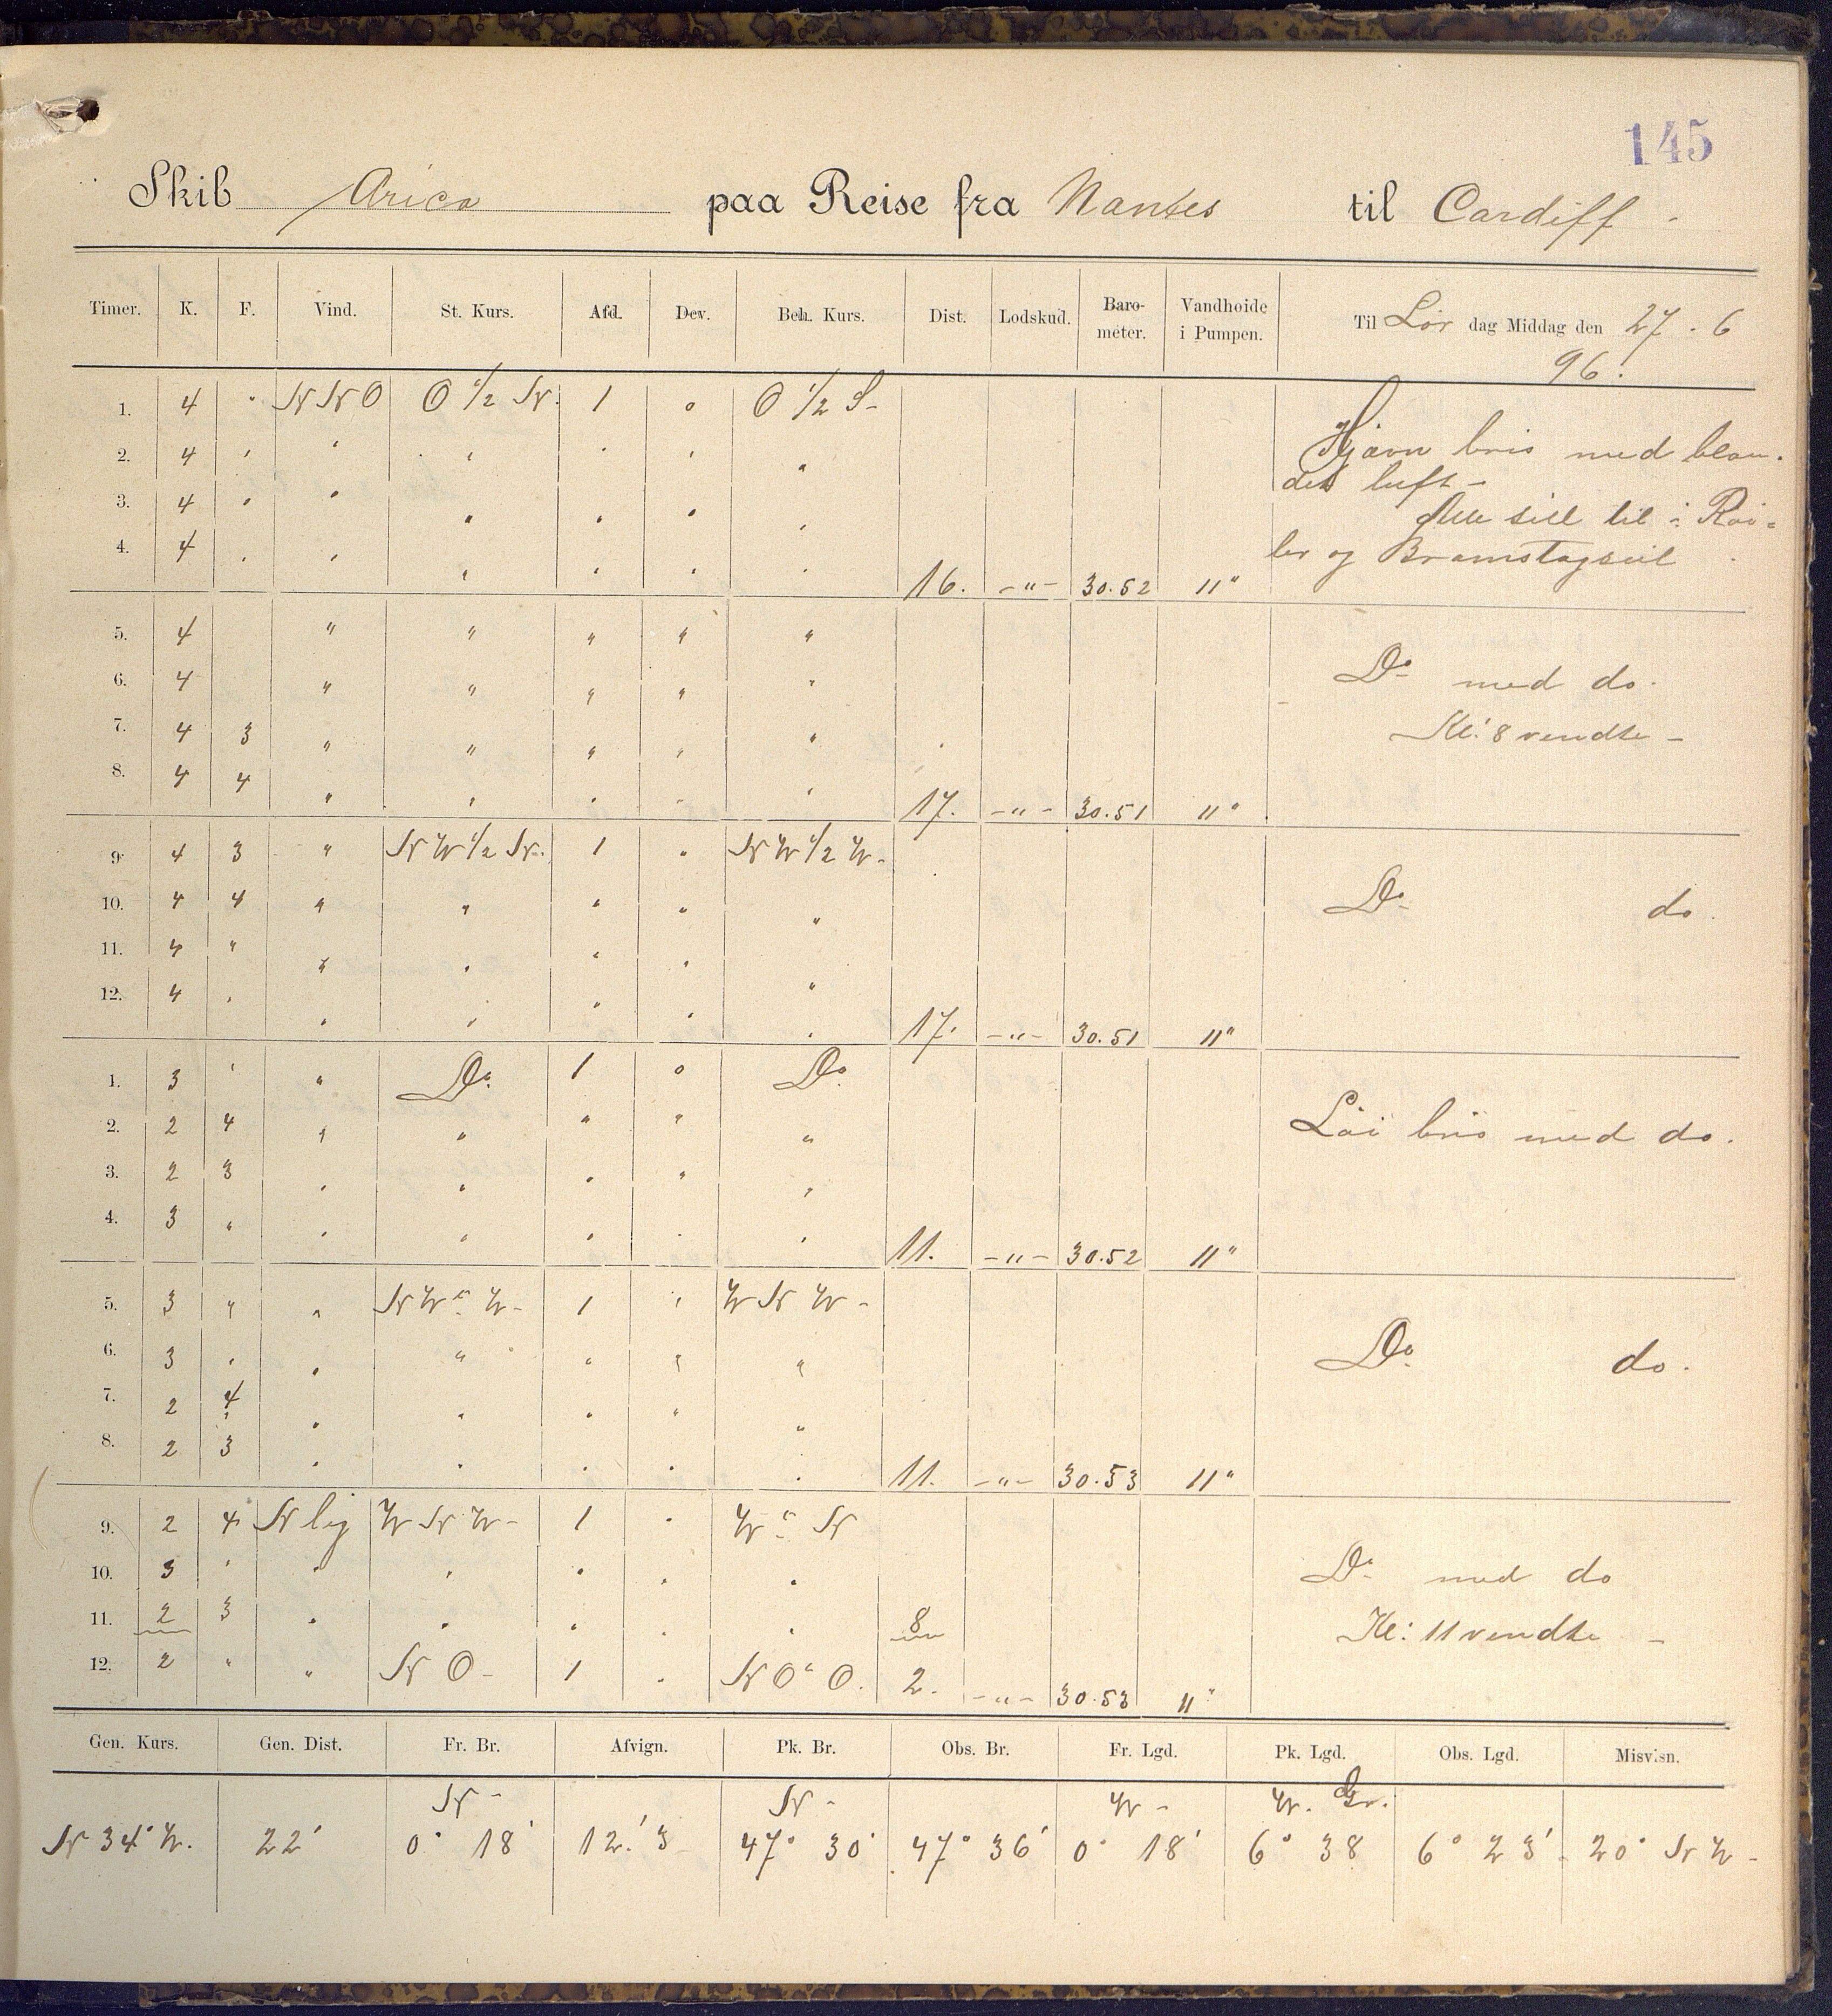 145
Skib Arica paa Reise fra Nantes til Cardiff -
Timer. K. F. Vind. St. Kurs. Afd. Dev. Beh. Kurs. Dist. Lodskud. Baro-meter. Vandhoide i Pumpen. Til Lør dag Middag den 27 . 6 96.
1. 4 " NNO O 1/2 N. 1 0 O 1/2 S -
2. 4 " " " " " " Hjævn bris med blan-
3. 4 " " " " " " det luft -
4. 4 " " " " " " 16. - " - 30.52 11"
Alle seil til i Röi-
ler og Bramstagseil
5. 4 " " " " "
6. 4 " " " " " Do med do.
7. 4 3 " " " " " Kl: 8 vendte -
8. 4 4 " " " " " 17. - " - 30.51 11"
9. 4 3 " NW 1/2 N. 1 " NW 1/2 W -
10. 4 4 " " " " " Do do.
11. 4 " " " " " "
12. 4 " " " " " " 17. - " - 30.51 11"
1. 3 " " Do 1 0 Do
2. 2 4 " " " " " Löi bris med do.
3. 2 3 " " " " "
4. 3 " " " " " " 11. - " - 30.52 11"
5. 3 " " NW " W - 1 " WNW -
6. 3 " " " " " " Do do.
7. 2 4 " " " " "
8. 2 3 " " " " " 11. - " - 30.53 11"
9. 2 4 N lig WNW - 1 " W " N
10. 3 " " " " " " Do med do
11. 2 3 " " " " " 8 Kl: 11 vendte -
12. 2 " " NO - 1 " NO " O. 2. - " - 30.53 11"
Gen. Kurs. Gen. Dist. Fr. Br. Afvign. Pk. Br. Obs. Br. Fr. Lgd. Pk. Lgd. Obs. Lgd. Misvisn.
N - N - W - W. Gr.
N 34° W. 22' 0° 18' 12.'3 47° 30' 47° 36' 0° 18' 6° 38 6° 23' 20° NW -